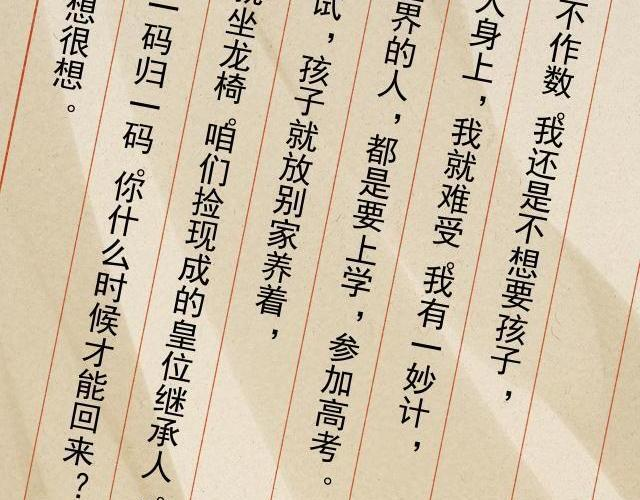 不作数。我还是不想要孩子，
人身上，我就难受。我有一妙计，
界的人，都是要上学，参加高考。
试，孩子就放别家养着，
坐龙椅。咱们捡现成的皇位继承人。
一码归一码。你什么时候才能回来？
想很想。